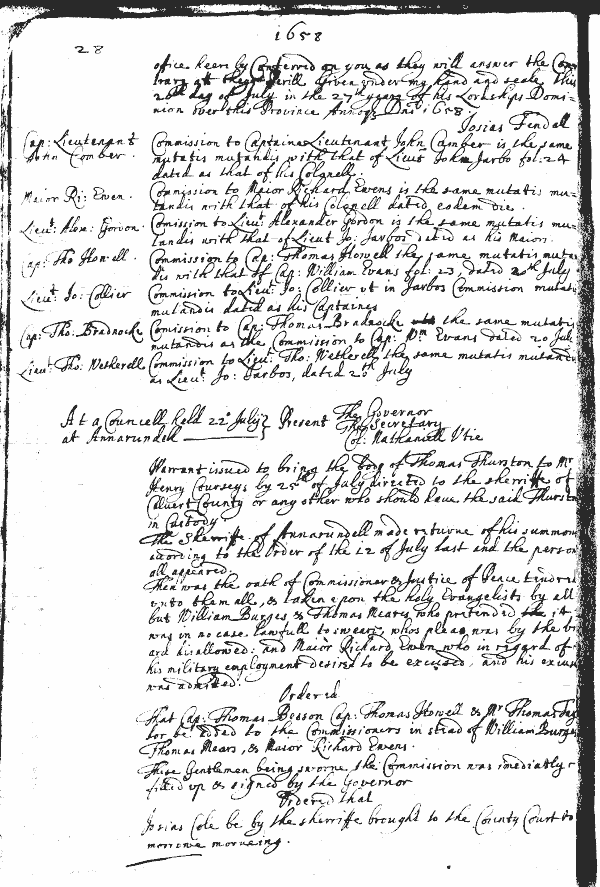 1658
28
office heere by Conferred on you as they will answer the Con
trary att theyr perill Given under my hand and seale this
20th day of July in the 27th yeare of his Lordships Domi=
nion over this Province Annoq Dni 1658
Josias Fendall
Cap: Lieutenant
John Comber
Commission to Captaine Lieutenant John Comber is the same
mutatis mutandis with that of Lieut John Jarbo fol: 24
dated as that of his Colonell
Maior Ri: Ewen
Commission to Maior Richard Ewens is the same mutatis mu=
tandis with that of his Colonell dated eodem die
Lieut: Alexr: Gordon
Comission to Lieut Alexander Gordon is the same mutatis mu=
tandis with that of Lieut Jo: Jarbos dated as his Maior
Cap: Tho Howell
Commission to Cap: Thomas Howell the same mutatis mutan
dis with that of Cap: William Evans fol: 23, dated 20th July
Lieut: Jo: Collier
Commission to Lieut: Jo: Collier vt in Jarbos Commission mutatis
mutandis dated as his Captaines
Cap: Tho: Bradnocke
Comission to Cap: Thomas Bradnocke the same mutatis
mutandis as the Commission to Cap: Wm Evans dated 20 July
Lieut: Tho: Wetherell
Commission to Lieut: Tho: Wetherell the same mutatis mutandis
as Lieut Jo: Jarbos, dated 20th July
At a Councell held 22o July } Present The Governor
The Secretary
at Annarundell
Co: Nathaniell Vtie
Warrant issued to bring the body of Thomas Thurston to Mr
Henry Courseys by 25th of July directed to the sherriffe of
Calvert County or any other who should have the said Thurston
in Custody
The Sherriffe of Annarundell made returne of his summons
according to the order of the 12 of July last and the persons
all appeared
Then was the oath of Commissioner & Justice of Peace tendred
vnto them all, & taken vpon the holy Evangelists by all
but William Burges, & Thomas Meares who pretended it
was in no case lawfull to sweare, whos plea was by the
disallowed: and Maior Richard Ewen who in regard of
his military employment desired to be excused, and his excuse
was admitted
Ordered
That Cap: Thomas Besson Cap: Thomas Howell & Mr Thomas Tay
lor be added to the Commissioners in stead of William Burges
Thomas Mears, & Maior Richard Ewens
These Gentlemen being sworne the Commission was imediatly
filled up & signed by the Governor
Ordered that
Josias Cole be by the sherriffe brought to the County Court to
morrow morneing.